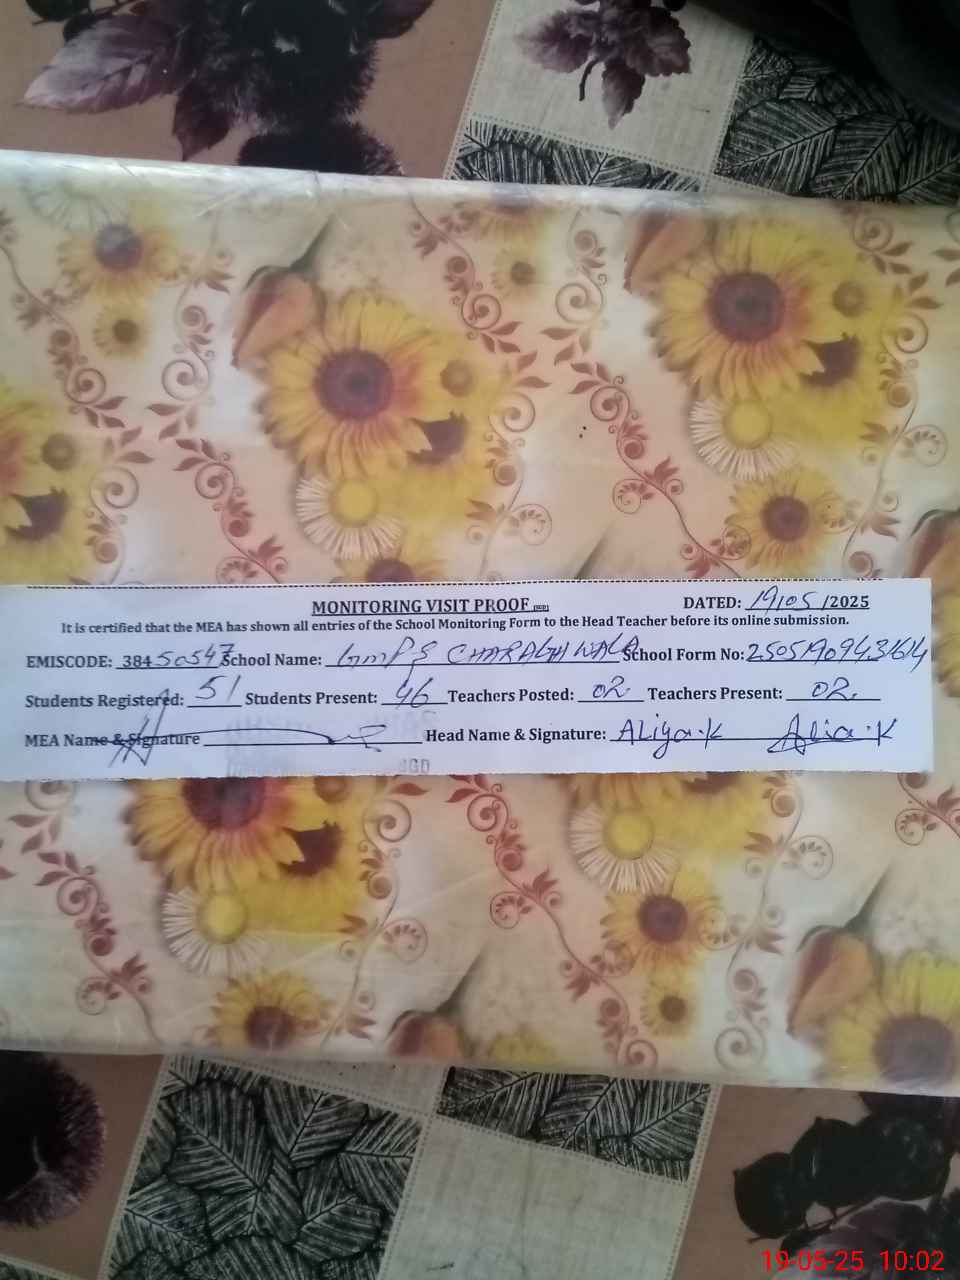 MONITORING VISIT PROOF DATED: 19/05/2025
It is certified that the MEA has shown all entries of the School Monitoring Form to the Head Teacher before its online submission.
EMISCODE: 38450547 School Name: GMPS CHARAGH WALA School Form No:
Students Registered: 51 Students Present: 46 Teachers Posted: 02 Teachers Present: 02.
MEA Name & Signature Head Name & Signature: ALiya.K Alia.K
19-05-25 10:02